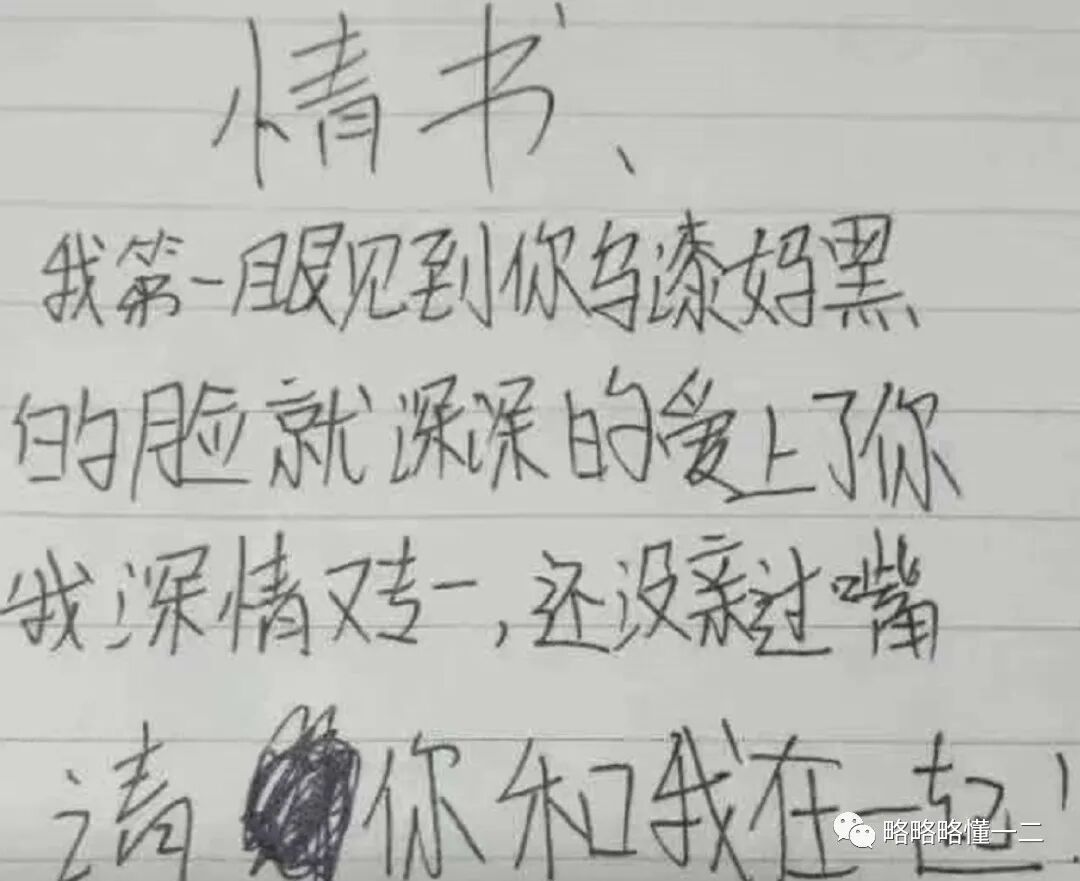 情书、
我第一眼见到你乌漆妈黑
的脸就深深的爱上了你
我深情又专一,还没亲过嘴
请你和我在一起!
略略略懂一二